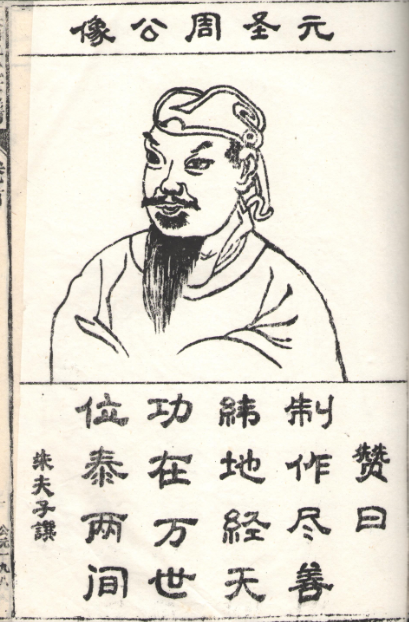 元圣周公像
赞曰
制作尽善
纬地经天
功在万世
位泰两间
朱夫子譔